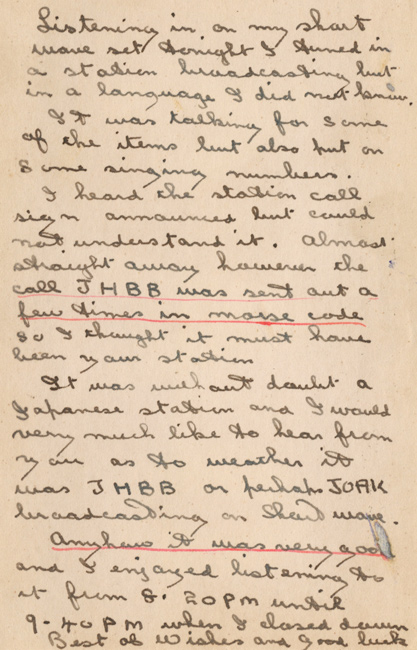 Listening in on my short
wave set tonight I tuned in
a station broadcasting but
in a language I did not know.
It was talking for some
of the items but also put on
some singing numbers.
I heard the station call
sign announced but could
not understand it. Almost
straight away however the
call JHBB was sent out a
few times in morse code
so I thought it must have
been your station
It was without doubt a
Japanese station and I would
very much like to hear from
you as to weather it
was JHBB or perhaps JOAK
broadcasting on short wave.
Anyhow it was very good
and I enjoyed listening to
it from 8.20 PM until
9-40 PM when I closed down
Best of Wishes and Good luck